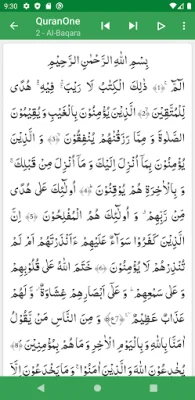 9:30
QuranOne
2 - Al-Baqara
بِسْمِ اللّٰهِ الرَّحْمٰنِ الرَّحِيْمِ
الٓمّٓ ﴿1﴾ ذٰلِكَ الْكِتٰبُ لَا رَيْبَ ۛ فِيْهِ ۛ هُدًى
لِّلْمُتَّقِيْنَ ﴿2﴾ الَّذِيْنَ يُؤْمِنُوْنَ بِالْغَيْبِ وَ يُقِيْمُوْنَ
الصَّلٰوةَ وَ مِمَّا رَزَقْنٰهُمْ يُنْفِقُوْنَ ﴿3﴾ وَ الَّذِيْنَ
يُؤْمِنُوْنَ بِمَاۤ اُنْزِلَ اِلَيْكَ وَ مَاۤ اُنْزِلَ مِنْ قَبْلِكَ ۚ
وَ بِالْاٰخِرَةِ هُمْ يُوْقِنُوْنَ ﴿4﴾ اُولٰٓئِكَ عَلٰى هُدًى
مِّنْ رَّبِّهِمْ ۙ وَ اُولٰٓئِكَ هُمُ الْمُفْلِحُوْنَ ﴿5﴾ اِنَّ
الَّذِيْنَ كَفَرُوْا سَوَآءٌ عَلَيْهِمْ ءَاَنْذَرْتَهُمْ اَمْ لَمْ
تُنْذِرْهُمْ لَا يُؤْمِنُوْنَ ﴿6﴾ خَتَمَ اللّٰهُ عَلٰى قُلُوْبِهِمْ
وَ عَلٰى سَمْعِهِمْ ؕ وَ عَلٰۤى اَبْصَارِهِمْ غِشَاوَةٌ ؗ وَّ لَهُمْ
عَذَابٌ عَظِيْمٌ ﴿7﴾ وَ مِنَ النَّاسِ مَنْ يَّقُوْلُ
اٰمَنَّا بِاللّٰهِ وَ بِالْيَوْمِ الْاٰخِرِ وَ مَا هُمْ بِمُؤْمِنِيْنَ ﴿8﴾
يُخٰدِعُوْنَ اللّٰهَ وَ الَّذِيْنَ اٰمَنُوْا ۚ وَ مَا يَخْدَعُوْنَ اِلَّاۤ